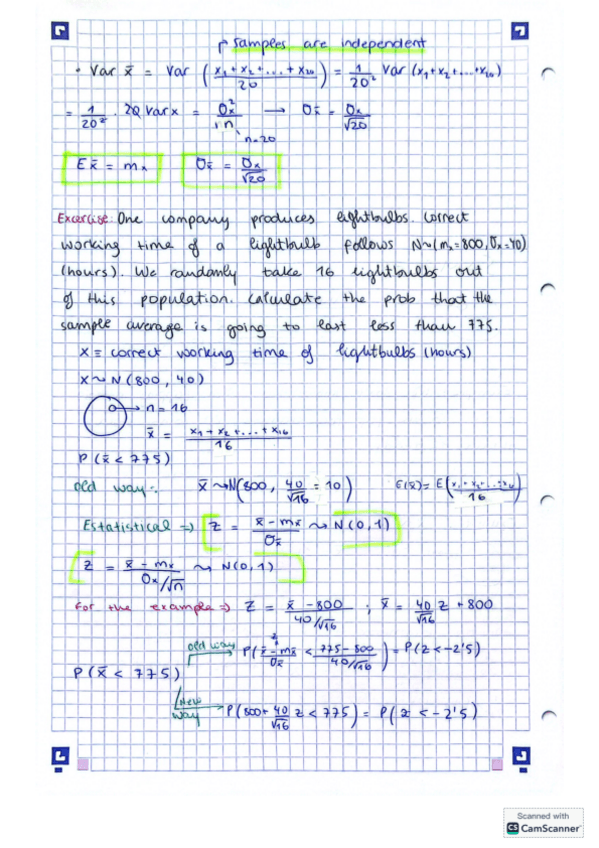 ↱ samples are independent
· Var x̄ = Var (x₁ + x₂ + ... + x₂₀ / 20) = 1/20² Var (x₁ + x₂ + ... + x₂₀)
= 1/20² · 20 Var x = σx²/n → σx̄ = σx/√20
n=20
E x̄ = mx   σx̄ = σx/√20
Excercise: One company produces lightbulbs. Correct
working time of a lightbulb follows N~(mx=800, σx=40)
(hours). We randomly take 16 lightbulbs out
of this population. Calculate the prob that the
sample average is going to last less than 775.
X = correct working time of lightbulbs (hours)
X ~ N (800, 40)
→ n = 16
x̄ = x₁ + x₂ + ... + x₁₆ / 16
P (x̄ < 775)
Old way:   x̄ ~ N(800, 40/√16 = 10)   E(x̄) = E(x₁ + x₂ + ... x₁₆ / 16)
Estatistical ⇒ Z = x̄ - mx / σx̄ ~ N(0,1)
Z = x̄ - mx / σx/√n ~ N(0,1)
For the example ⇒ Z = x̄ - 800 / 40/√16 ; x̄ = 40/√16 Z + 800
old way → P(x̄ - mx̄ / σx̄ < 775 - 800 / 40/√16) = P(Z < -2'5)
z
P (x̄ < 775)
New way → P(800 + 40/√16 Z < 775) = P(Z < -2'5)
Scanned with
CS CamScanner